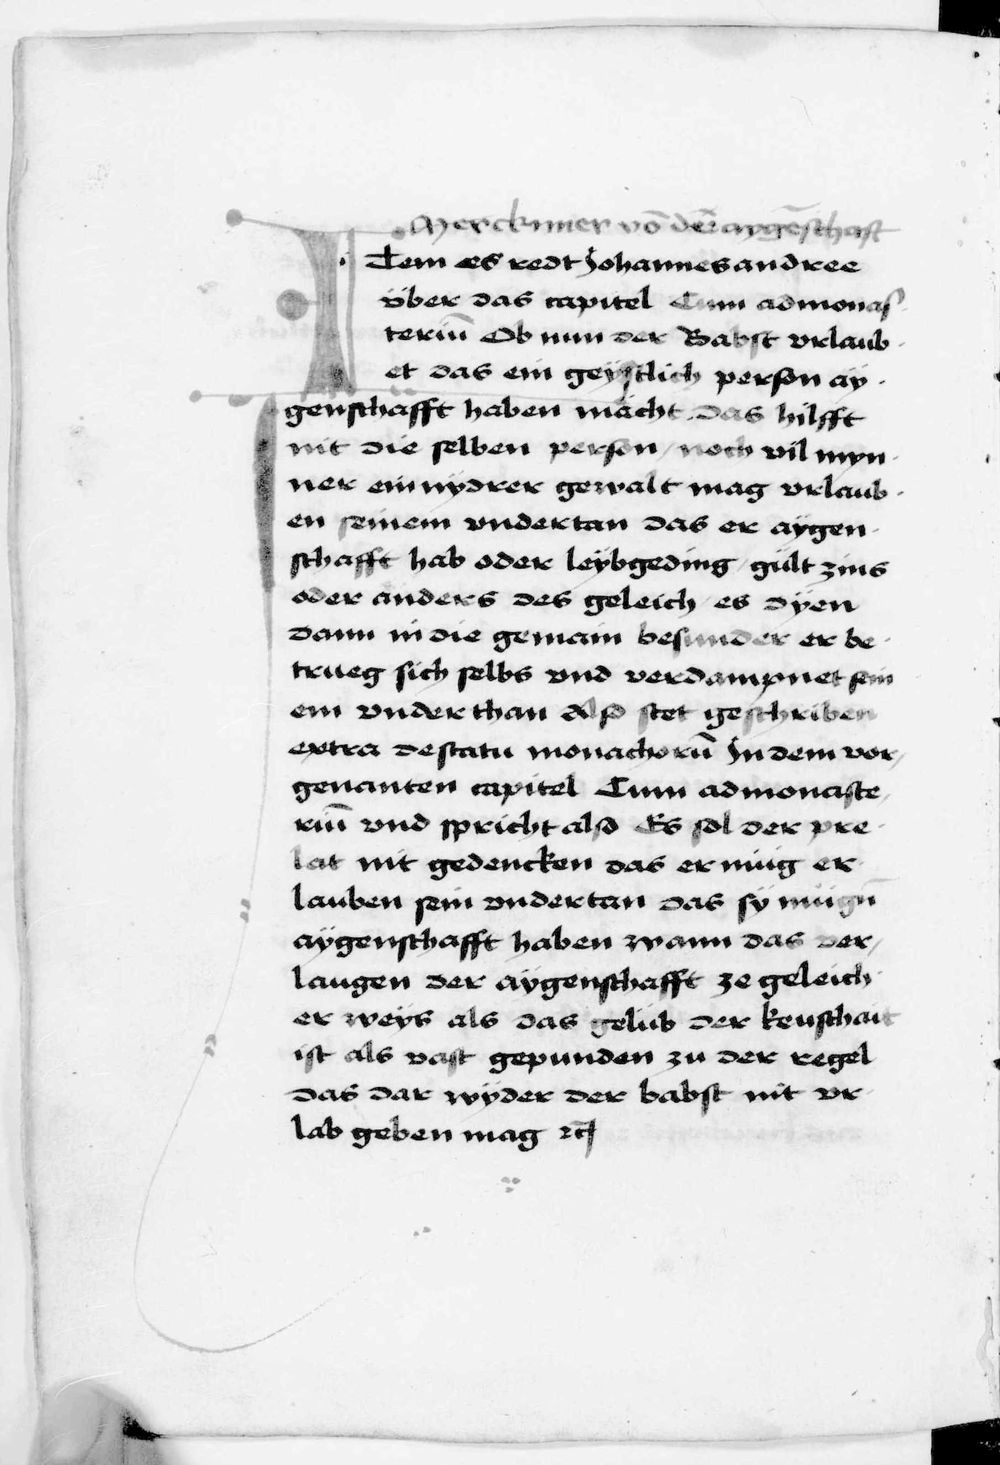 Merck mer võ der aygẽschaft
Item es redt Johannes andree
über das capitel Cum ad monas
teriũ Ob nun der Babst vrlaub
et das ein geystlich person ay
genschafft haben mächt das hilfft
nit die selben person / noch vil myn
ner ein nydrer gewalt mag vrlaub
en seinem vndertan das er aygen
schafft hab oder leybgeding / gült zins
oder anders des geleich / es dyen
dann in die gemain besunder er be
trueg sich selbs vnd verdampnet sein
em vnderthan Also stet geschriben
extra de statu monachorũ In dem vor
genanten capitel Cum ad monaste
riũ vnd spricht also Es sol der pre
lat nit gedencken das er müg er
lauben sein vndertan das sy mügñ
aygenschafft haben wann das ver
laugen der aygenschafft ze geleich
er weys als das gelüb der keuschait
ist als vast gepunden zu der regel
das dar wyder der babst nit vr
lab geben mag ⁊c̃